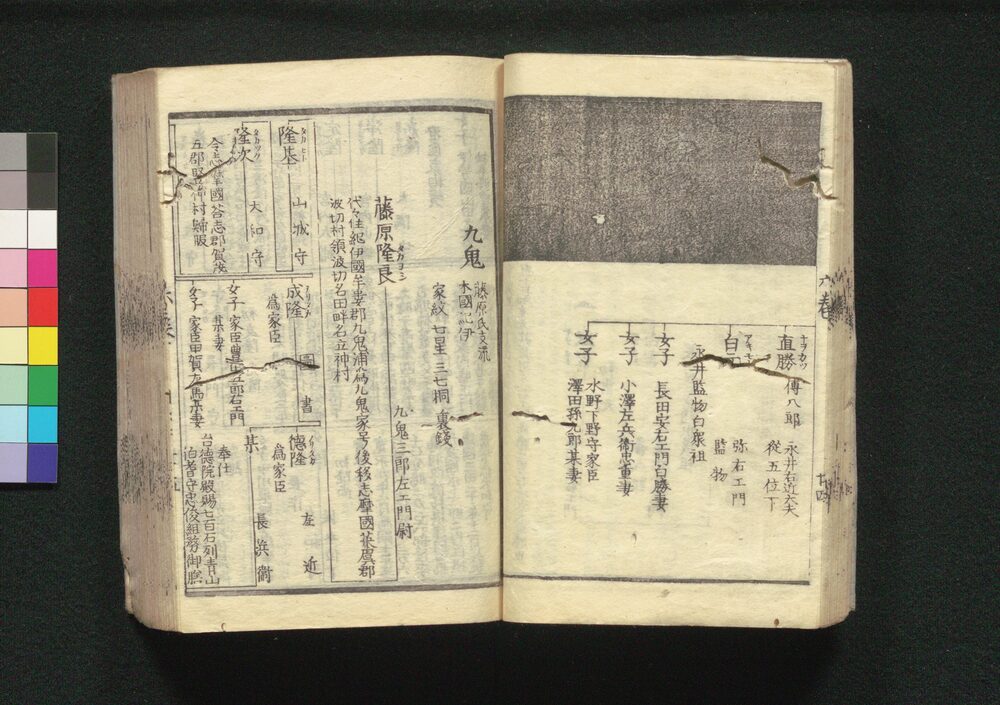 直勝 傳八郎
ナヲカツ
永井右近大夫
從五位下
白元
弥右エ門
監物
永井監物白衆祖
女子 長田安右エ門白勝妻
女子 小澤左兵衛忠重妻
女子 水野下野守家臣
澤田孫九郎某妻
春
九鬼
藤原氏支流
本國紀伊
家紋 七星 三七桐 裏錢
藤原隆良
タカヨシ
九鬼三郎左エ門尉
代々住紀伊國牟婁郡九鬼浦為九鬼家号後移志摩國英虞郡
波切村領波切名田畔名立神村
隆基 山城守
隆次 大和守
タカツグ
今志摩國荅志郡賀茂
成隆 圖書
為家臣
女子 家臣豊田五郎右エ門
某妻
女子 家臣甲賀左馬某妻
德隆 左近
為家臣
某 長浜衛
奉仕
台德院殿賜七百石列青山
伯耆守忠俊組勞御膳